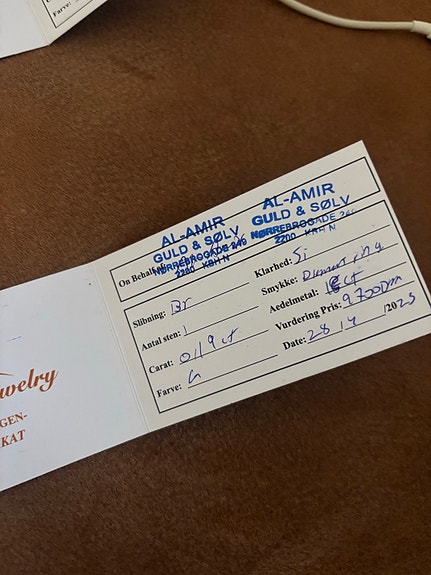 Farve:
AL-AMIR
GULD & SØLV
NØRREBROGADE 249
2200 KBH N
AL-AMIR
GULD & SØLV
NØRREBROGADE 249
2200 KBH N
On Behalf
Slibning: Br
Klarhed: Si
Antal sten: 1
Smykke: Diamant ring
Carat: 0,19 ct
Aedelmetal:
Farve:
Vurdering Pris: 9700
Date: 28 /2023
welry
GEN-
KAT